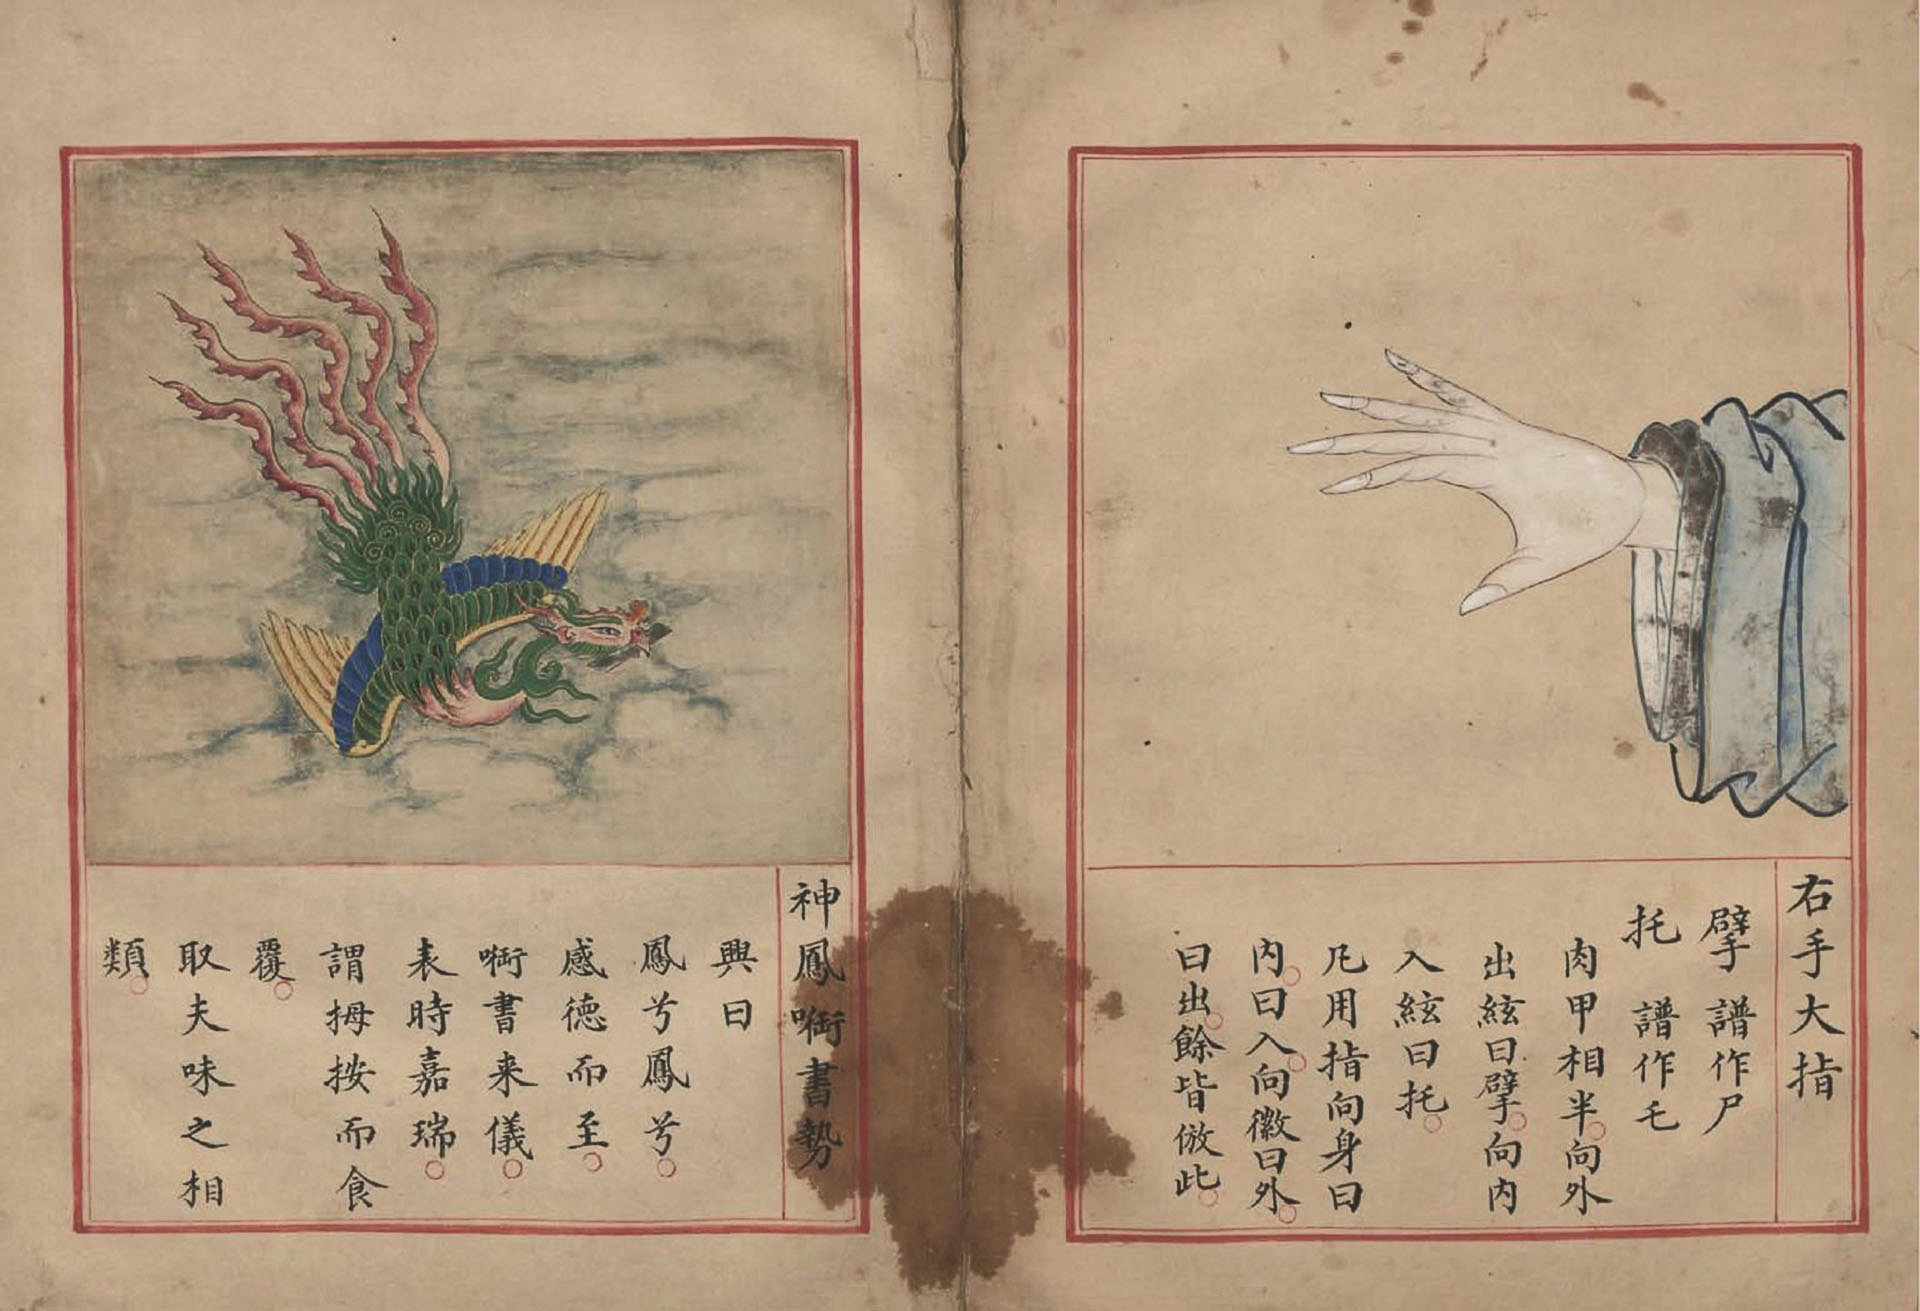 右手大指
擘 譜作尸
托 譜作乇
肉甲相半向外
出絃曰擘向内
入絃曰托
凡用指向身曰
内曰入向徽曰外
曰出餘皆倣此
神鳳啣書勢
興曰
鳳兮鳳兮
感德而至
啣書来儀
表時嘉瑞
謂拇按而食
覆
取夫味之相
類